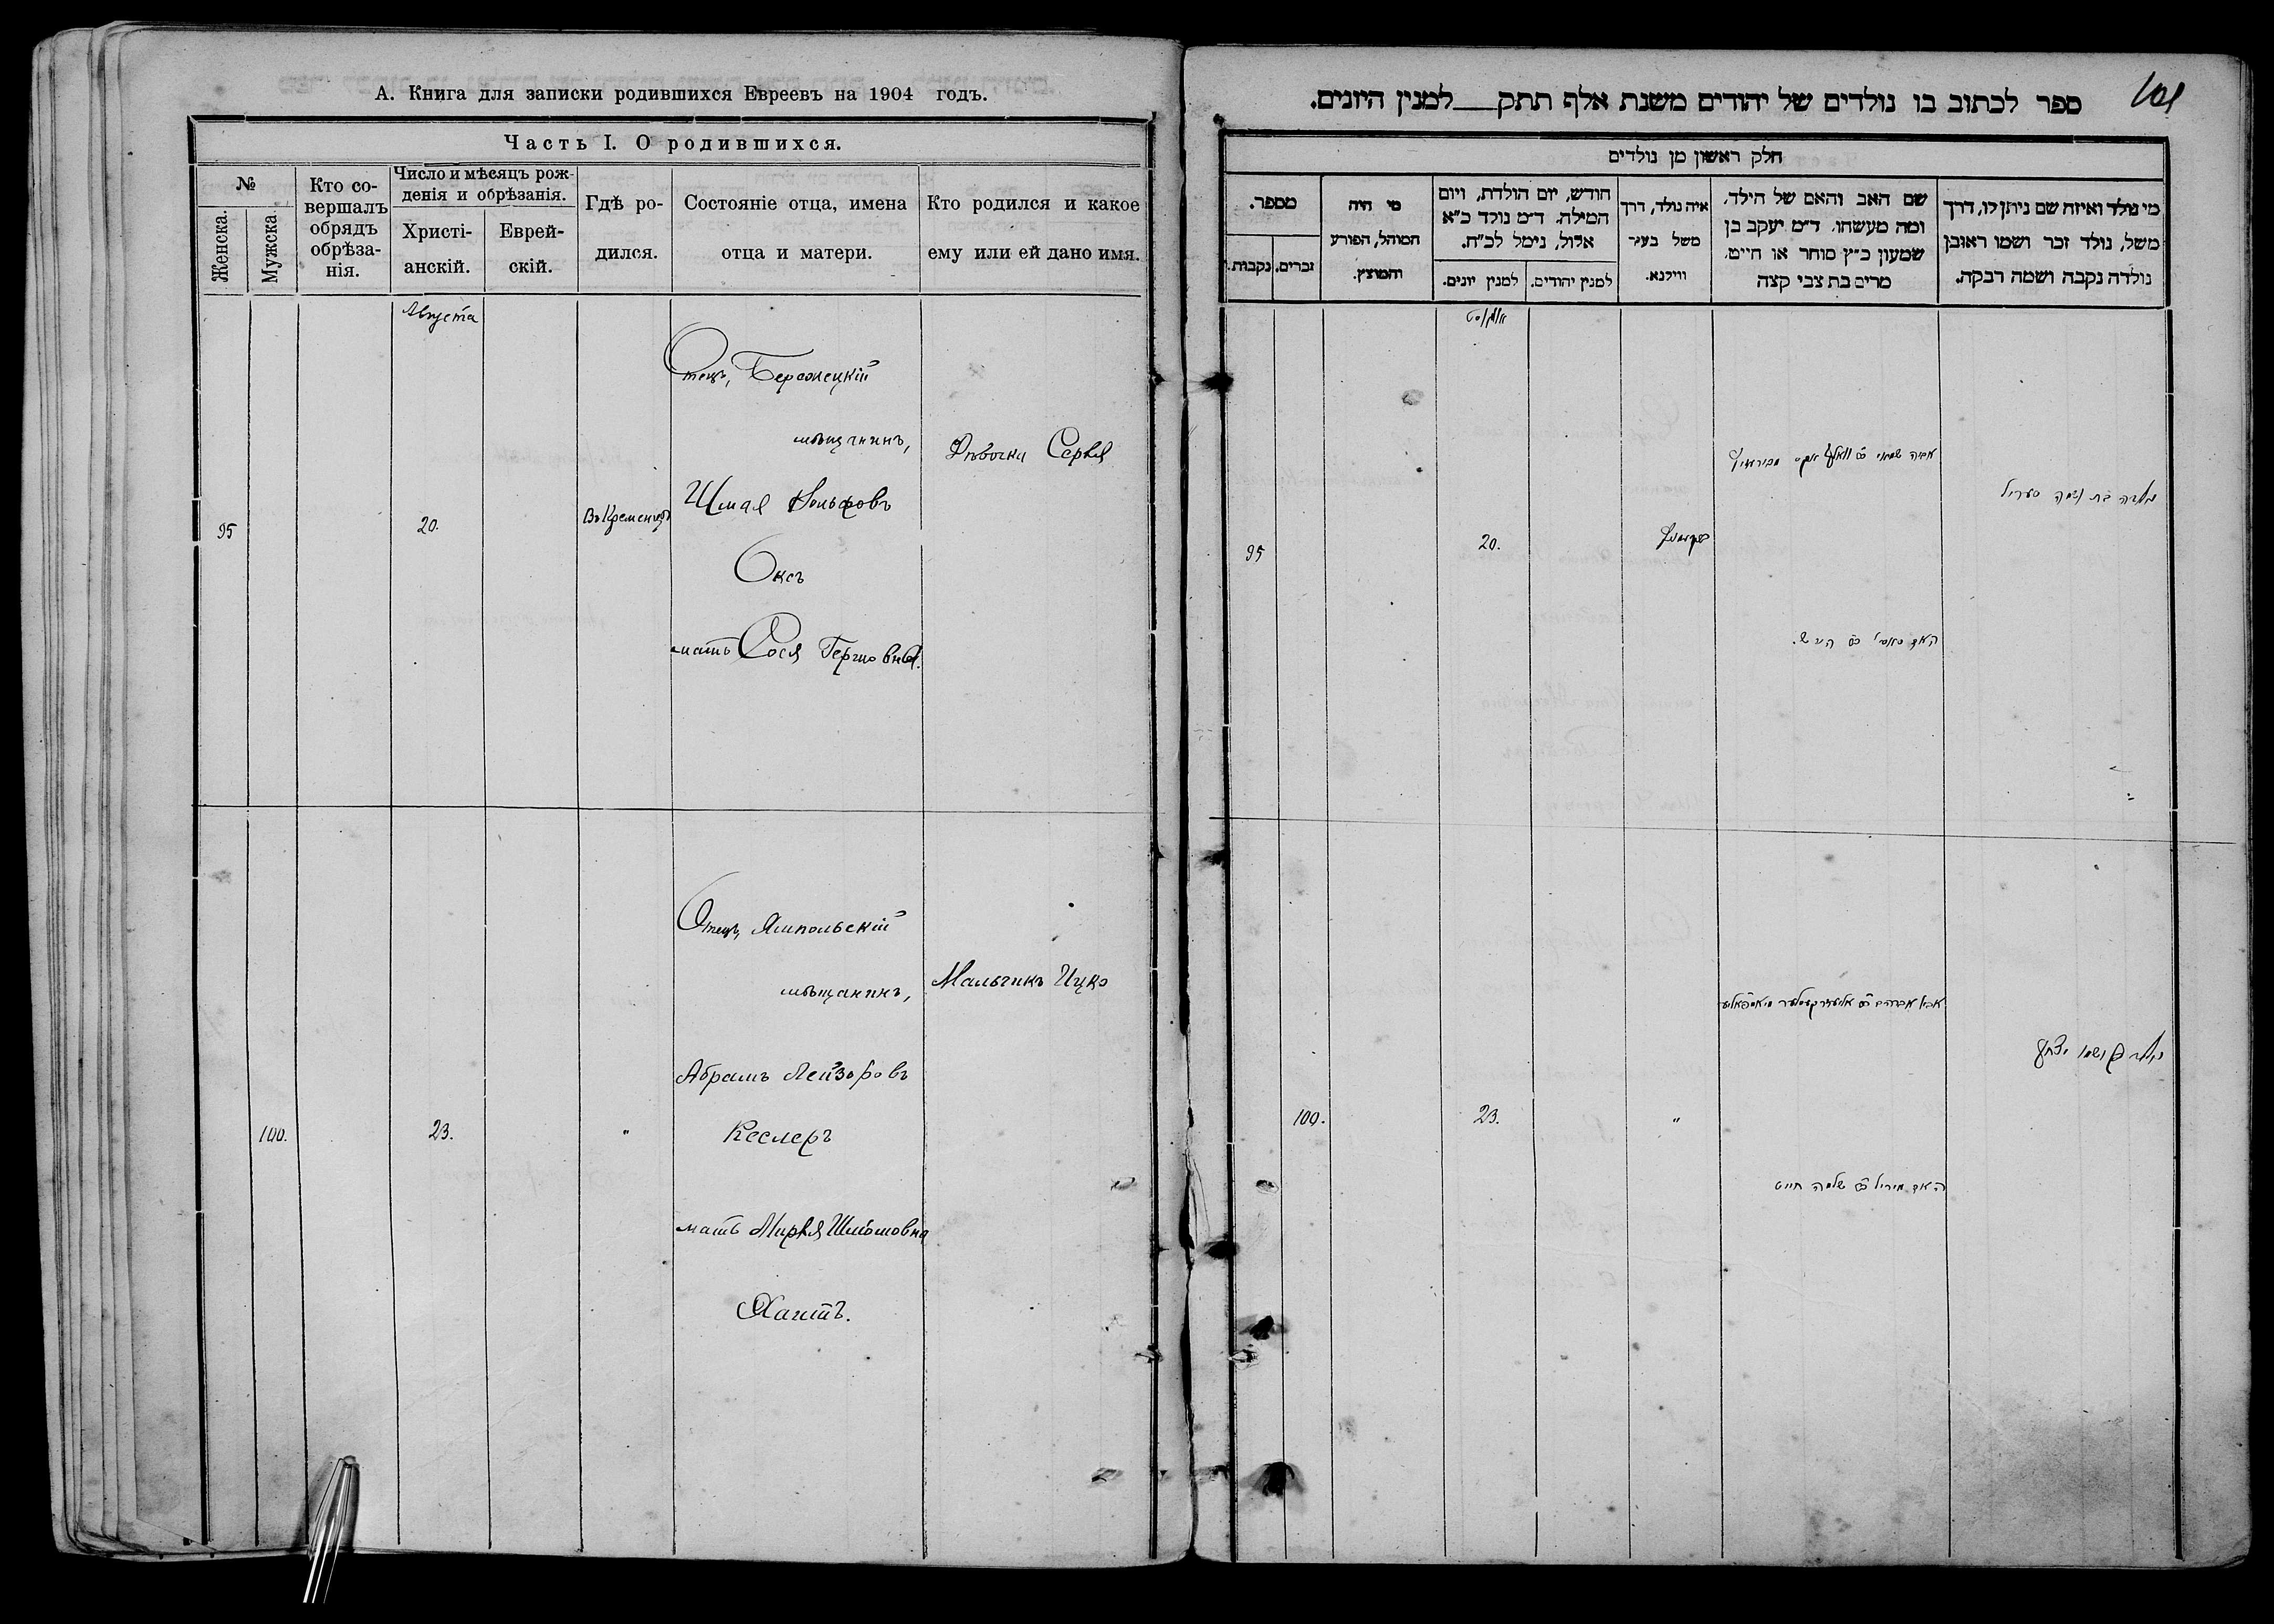 А. Книга для записки родившихся Евреевъ на 1904 годъ.
Часть I. О родившихся.
№
Женска.
Мужска.
Кто совершалъ обрядъ обрѣзанія.
Число и мѣсяцъ рожденія и обрѣзанія.
Христіанскій.
Еврейскій.
Гдѣ родился.
Состояніе отца, имена отца и матери.
Кто родился и какое ему или ей дано имя.
Августа
95
20.
Въ Кременцѣ
Отецъ, Бережецкій
мѣщанинъ,
Шмая Вольфовъ
Оксъ
мать Сося Гершовна.
Дѣвочка Серля
100.
23.
"
Отецъ, Ямпольскій
мѣщанинъ,
Абрамъ Лейзоровъ
Кеслеръ
мать Мирля Шлёмовна
Хаитъ.
Мальчикъ Ицко
101
ספר לכתוב בו נולדים של יהודים משנת אלף תתק__למנין היונים.
חלק ראשון מן נולדים
מי נולד ואיזה שם ניתן לו, דרך
משל, נולד זכר ושמו ראובן
נולדה נקבה ושמה רבקה.
שם האב והאם של הילד,
ומה מעשהו. ד״מ יעקב בן
שמעון כ״ץ סוחר או חייט,
מרים בת צבי קצה
איה נולד, דרך
משל בעיר
ווילנא.
חודש, יום הולדת, ויום
המילה. ד״מ נולד כ״א
אלול, נימל לכ״ח.
למנין יהודים.
למנין יונים.
מי היה
המוהל, הפורע
והמוצץ.
מספר.
זכרים.
נקבות.
אויגוסט
95
20.
האם
100.
23.
"
אביו אברהם אליעזר קעסלער
האם מירל שלמה חייט